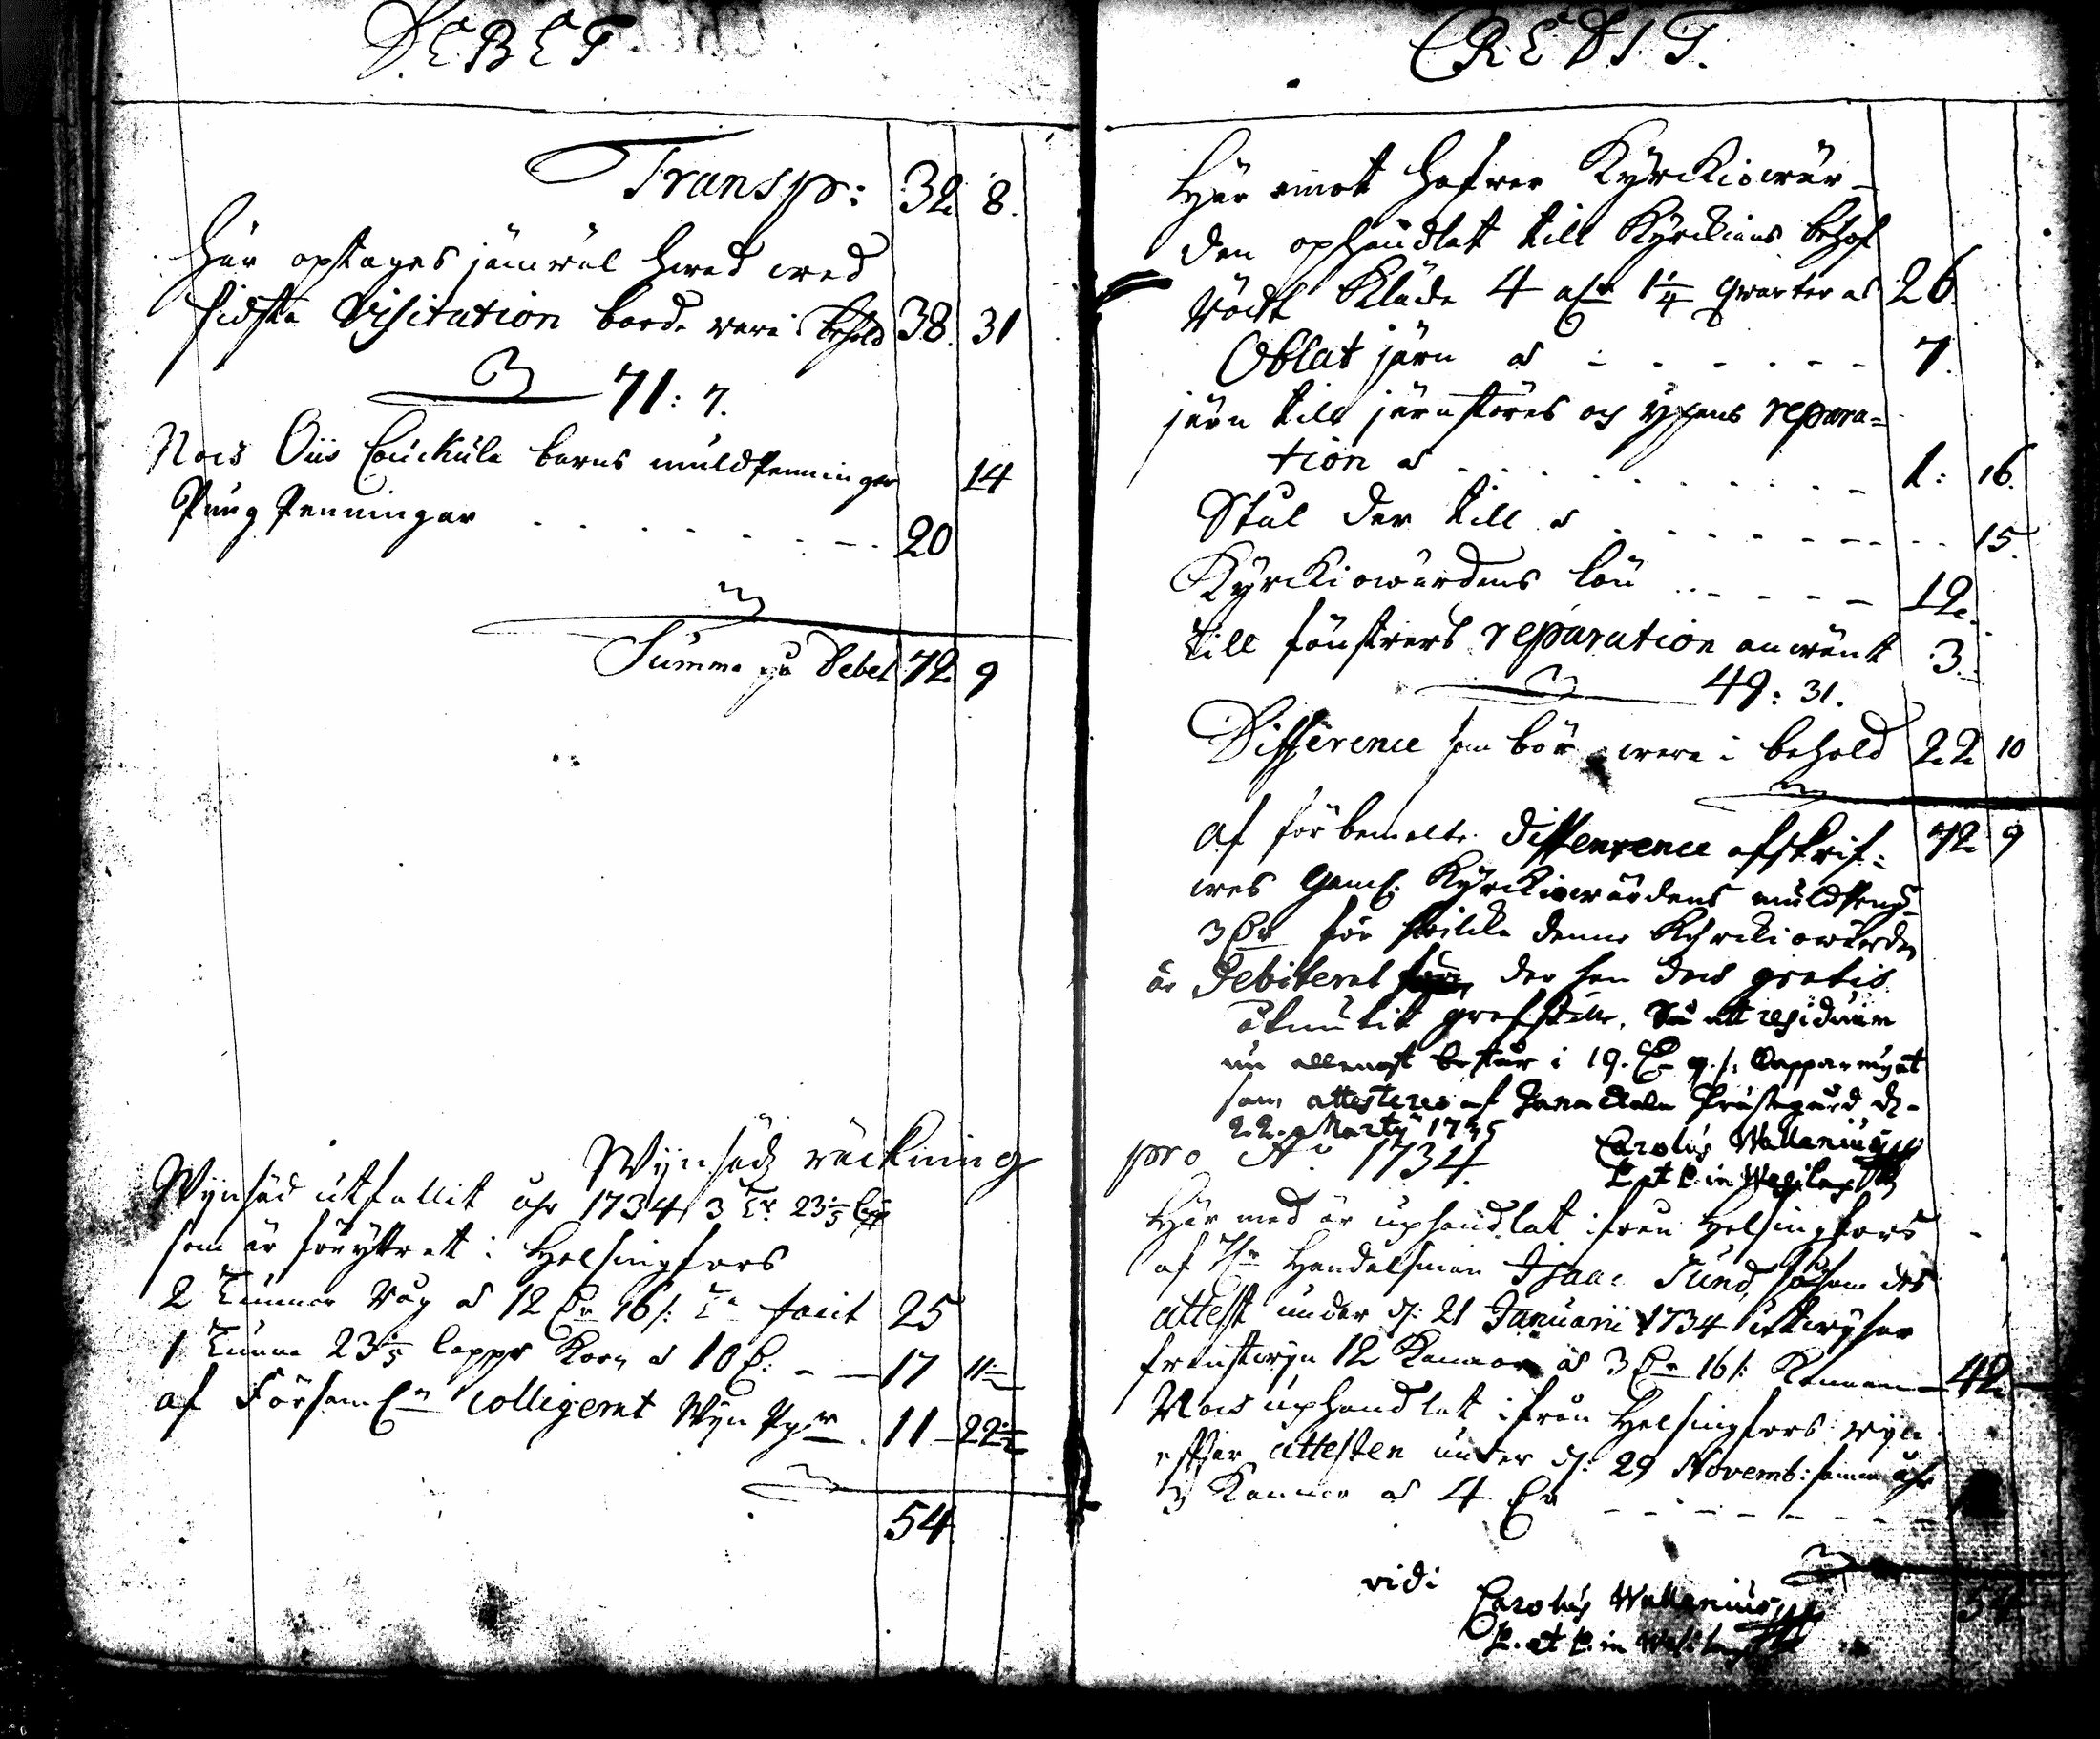 DEBET
Transp: 32. 8.
här optages jämwäl hwad wed
sidsta Visitation borde wara i behold 38. 31
71: 7.
Noch barns muldpenningar 14
Pung Penningar - - - - - - - 20
Summa på Debet 72 9
Wijnsädz räckning
Wijnsäd utfallit åhr 1734 3 Tr 23 3/5
som är föryttratt i Helsingfors
2 Tunnor Råg a 12 Dr 16 /: Tn facit 25
1 Tunna 23 3/5 Cappr Korn a 10 D: - - 17 11
af Församln colligerat Wijn Pgr 11 - 22
54
CREDIT.
Här emott hafwer Kyrckiowär-
den ophandlatt till Kyrckians behof
Rödt Kläde 4 aln 1 1/4 quarter a 26.
Oblat järn a - - - - - - 7.
järn till järnstörs och yxans repara=
tion a - - - - - - - - 1: 16.
Stål der till a - - - - - - - - 15.
Kyrckiowärdens lön - - - - - 12.
till fönstrers reparation anwänt 3.
49: 31.
Difference som bör wara i behold 22 10
72 9
Af förbemelte differrence afskrif=
wes Gaml: Kyrckiowärdens muldpeng
3 Dr för hwilka denne Kyrckiowärden
är debiterat der han dock gratis
åtnutit grafställe. Så att residuum
nu allenast består i 19. Dr 9. /: Kopparmynt
som attesteres af Janackala Prästegård d.
22. Marty 1735
Carolus Wallenius
P. et P. in Wesilax
pro Ao 1734.
Här med är uphandlat ifrån Helsingfors
af Hr Handelsman Isaac Sund, såsom des
attest under d: 21 Januarii 1734 utwijsar
franstwijn 12 Kannor a 3 Dr 16 /: Kannan - 42 -
Noch uphandlat ifrån Helsingfors wijn
efter attesten under d: 29 Novemb: samma åhr
3 Kannor a 4 Dr - - - - - - -
54
vidi
Carolus Wallenius
P. et P. in Wesilax